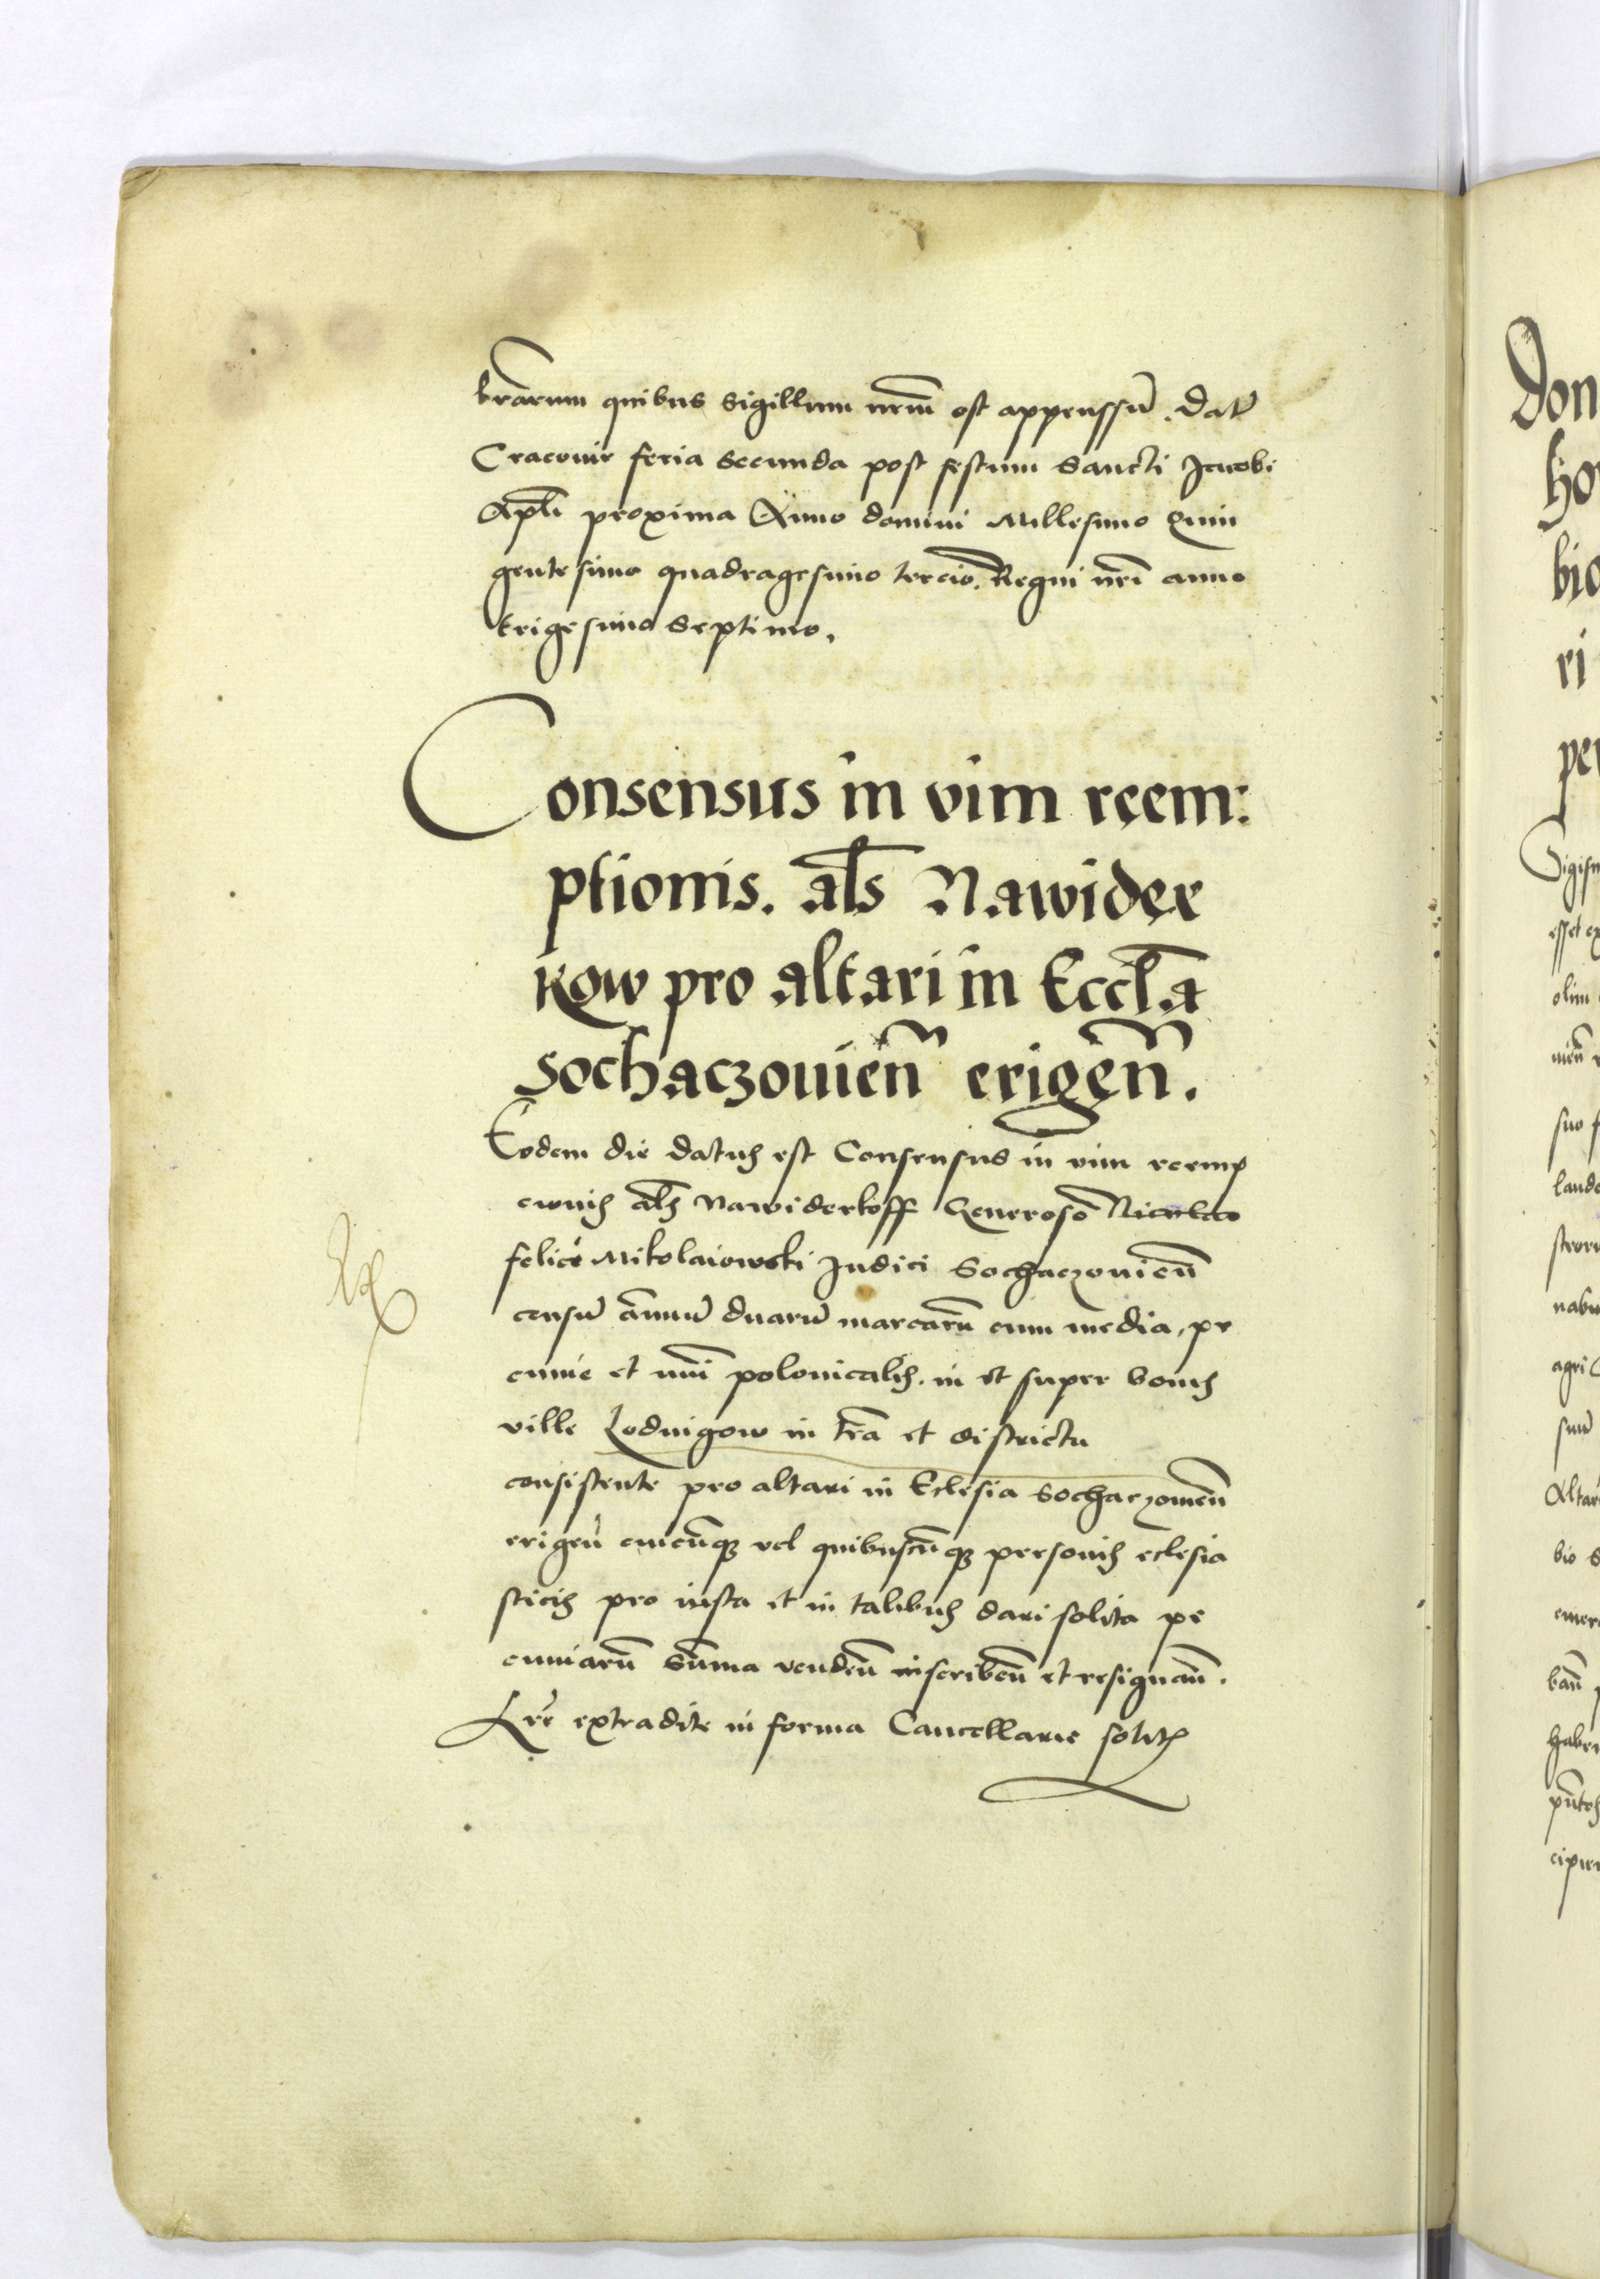 brarum quibus sigillum nrm̄ est appenssū. Datū
Cracovie feria secunda post festum sancti Jacobi
Apl̄i proxima Anno domini Millesimo quin
gentesimo quadragesimo tercio. Regni nr̄i anno
trigesimo septimo.
Consensus in vim reem:
ptionis. al̄s Nawider
kow pro altari in Eccl̄a
sochaczovien̄ erigen̄.
Eodem die datus est Consensus in vim reemp
cionis al̄s Nawiderkoff Generoso Nicolao
felici Mikolaiowski Judici Sochaczovien̄
censū annuū duarū marcarū cum media, pe
cunie et nūi polonicalis. in et super bonis
ville Lodvigow in tr̄a et districtu
consistente pro altari in Eclesia Sochaczovien̄
erigen̄ cuicūq; vel quibuscūq; personis eclesia
sticis pro iusta et in talibus dari solita pe
cuniarū sūma venden̄ inscriben̄ et resignan̄.
Lr̄e extradite in forma Cancellarie solit